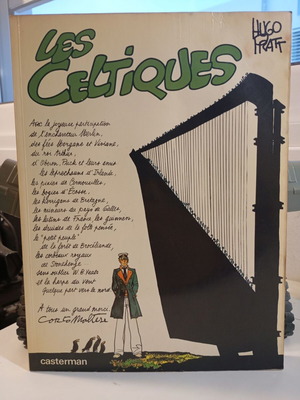 LES
CELTIQUES
HUGO
PRATT
Avec la joyeuse participation
de l'enchanteur Merlin,
des fées Morgane et Viviane,
du roi Arthur,
d'Oberon, Puck et leurs amis
les leprechauns d'Irlande,
les pixies de Cornouailles,
les bogies d'Ecosse,
les Korrigans de Bretagne,
les mineurs du pays de Galles,
les lutins de France, les gnomes,
les druides de la folle pensée,
le "petit peuple"
de la forêt de Brocéliande,
les corbeaux royaux
de Stonehenge
sans oublier W. B. Yeats
et la harpe du vent
quelque part vers le nord.
A tous un grand merci.
Corto Maltese
casterman